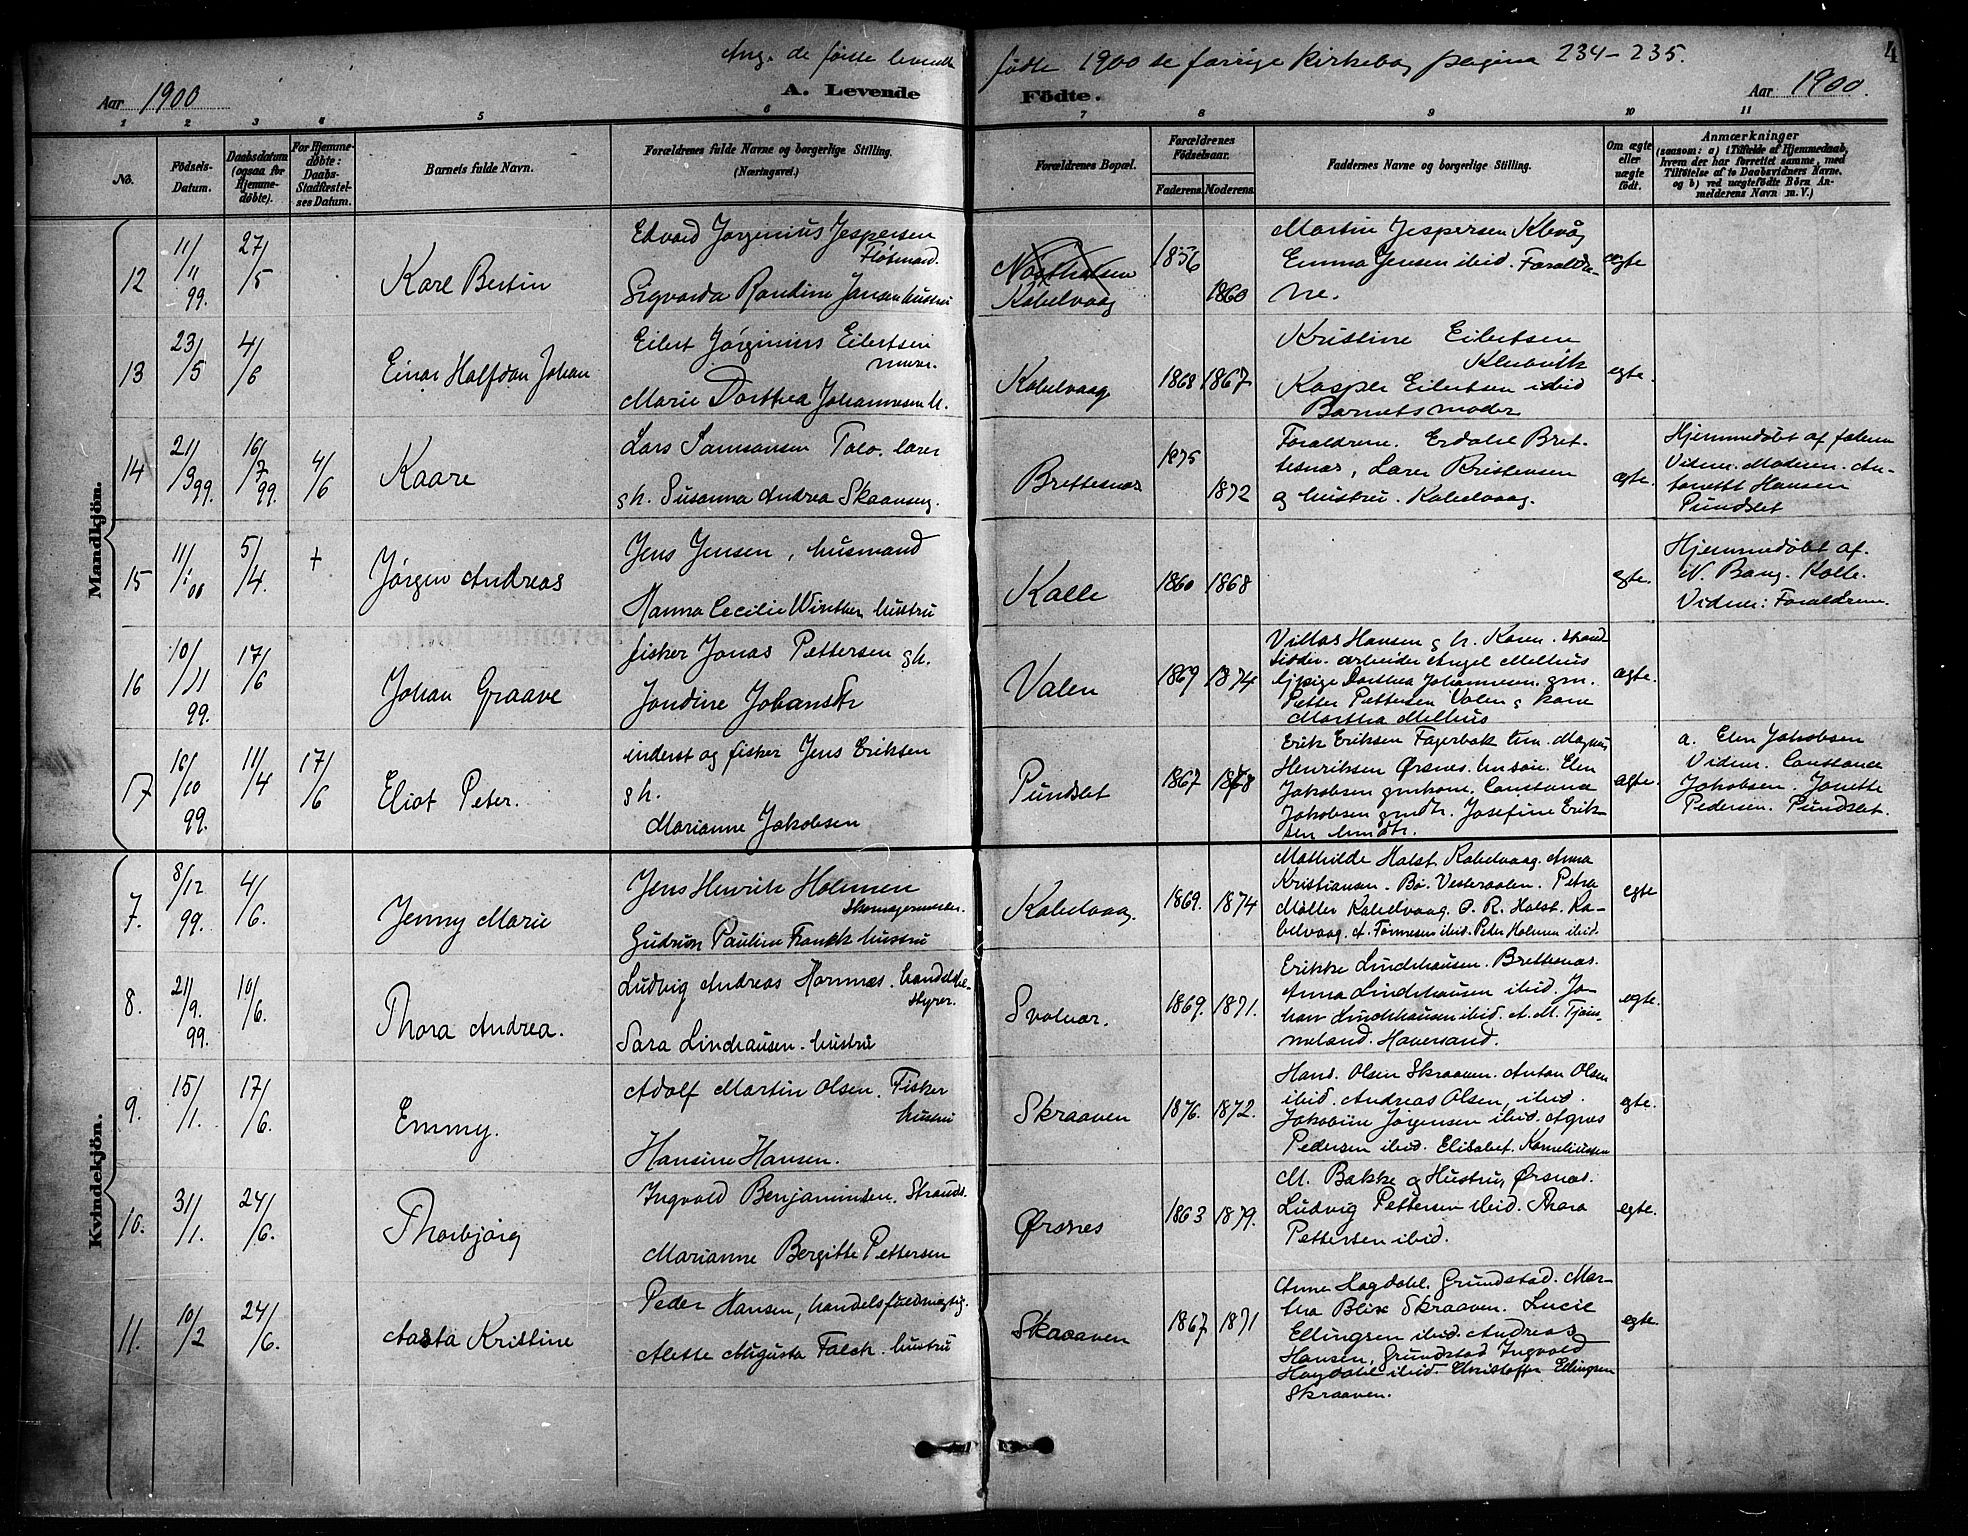 Ang. de første levende
fødte 1900 se forrige kirkebog pagina 234-235.
4
Aar 1900
A. Levende
Födte.
Aar 1900.
1 2 3 4 5 6 7 8 9 10 11
No.
Födsels-
Datum.
Daabsdatum
(ogsaa for
Hjemme-
döbte).
For Hjemme-
döbte:
Daabs-
Stadfæstel-
ses Datum.
Barnets fulde Navn.
Forældrenes fulde Navne og borgerlige Stilling.
(Næringsvei.)
Forældrenes Bopæl.
Forældrenes
Födselsaar.
Faderens.
Moderens.
Faddernes Navne og borgerlige Stilling.
Om ægte
eller
uægte
födt.
Anmærkninger
(saasom: a) i Tilfælde af Hjemmedaab,
hvem der har forrettet samme, med
Tilföielse af to Daabsvidners Navne,
og b) ved uægtefödte Börn An-
melderens Navn m. V.)
Mandkjön.
12
11/11 99.
27/5
Karl Bertin
Edvard Jørgenius Jespersen
Fløtmand.
Sigvarda Randine Jansen hustru
Kabelvaag
1856
1860
Martin Jespersen Klevåg
Emma Jensen ibid. Foraldre-
ne.
ægte
13
23/5
4/6
Einar Halfdan Johan
Eilert Jørginius Eilertsen
murer.
Marie Dorthea Johannesen h.
Kabelvaag
1868
1867
Kristine Eilertsen
Kasper Eilertsen ibid
Barnets moder
egte.
14
21/3 99.
16/7 99.
4/6
Kaare
Lars Samsonsen Tolo. lærer
gh. Susanna Andrea Skaanseng.
Brettesnæs
1875
1872
Foraldrene. Erdahl Bret-
tesnæs, Lærer Kristensen
og hustru. Kabelvaag.
ægte.
Hjemmedøbt af faderen
Vidner. Moderen. An-
tonette Hansen
Pundslet
15
11/1 00
5/4.
+
Jørgen Andreas
Jens Jensen, husmand
Hanna Cecilie Winther hustru
Kalle
1860
1868
egte.
Hjemmedøbt af.
N. Bang. Kalle.
Vidner: Foraldrene.
16
10/11 99.
17/6
Johan Graave
fisker Jonas Pettersen gh.
Jondine Johansdtr
Valen
1869
1874
Villas Hansen g h. Karen. strand
sidder. arbeider Angel Melhus
tjpige Dorthea Johannesen. gm.
Petter Pettersen Valen g kone
Martha Melhus
ægte.
17
16/10 99.
11/4
17/6
Eliot Peter.
inderst og fisker Jens Eriksen
gh.
Marianne Jakobsen
Pundslet
1867
1878
Erik Eriksen Fagerbak tm. Magnus
Henriksen Ørsnes. husøn. Elen
Jakobsen gmkone. Constance
Jakobsen gmdtr. Josefine Erik-
sen hmdtr.
ægte.
a. Elen Jakobsen
Vidner. Constance
Jakobsen. Jonette
Pedersen. Pundslet.
Kvindekjön.
7.
8/12 99.
4/6.
Jenny Marie
Jens Henrik Holmen
Skomagermester.
Gudrun Pauline Franck hustru
Kabelvaag.
1869.
1874
Mathilde Holst Kabelvaag. Anna
Kristiansen. Bø. Vesteraalen. Petra
Møller Kabelvaag. O. R. Holst. Ka-
belvaag. A. Tønnesen ibid. Peter Holmen ibid.
egte
8.
21/9. 99.
10/6.
Thora Andrea.
Ludvig Andreas Hornnæs. handelsbe-
styrer.
Sara Lindhausen. hustru
Svolvær.
1869.
1871.
Erikke Lindhausen. Brettesnæs.
Anna Lindhausen ibid. Jo-
han Lindhausen ibid. A. M. Tjøns-
meland. Havesand.
egte.
9.
15/1.
17/6.
Emmy.
Adolf Martin Olsen. Fisker
hustru
Hansine Hansen.
Skraaven
1876.
1872.
Hans. Olsen Skraaven. Anton Olsen
ibid. Andreas Olsen, ibid.
Jakobine Jørgensen ibid. Agnes
Pedersen ibid. Elisabet. Korneliussen
egte.
10.
31/1.
24/6.
Thorbjørg
Ingvald Benjaminsen. Strands.
Marianne Bergitte Pettersen
Ørsnes
1863
1879.
M. Bakke og Hustru, Ørsnes.
Ludvig Pettersen ibid. Thora
Pettersen ibid.
egte.
11.
10/2
24/6.
Aasta Kristine
Peder Hansen, handelsfuldmægtig.
Alette Augusta Falch. hustru
Skraaven
1867
1871
Anne Hagdahl. Grundstad. Mar-
tha Blix Skraaven. Lucie
Ellingsen ibid. Andreas
Hansen, Grundstad Ingvald
Hagdahl ibid. Christoffer Ellingsen
Skraaven.
egte.